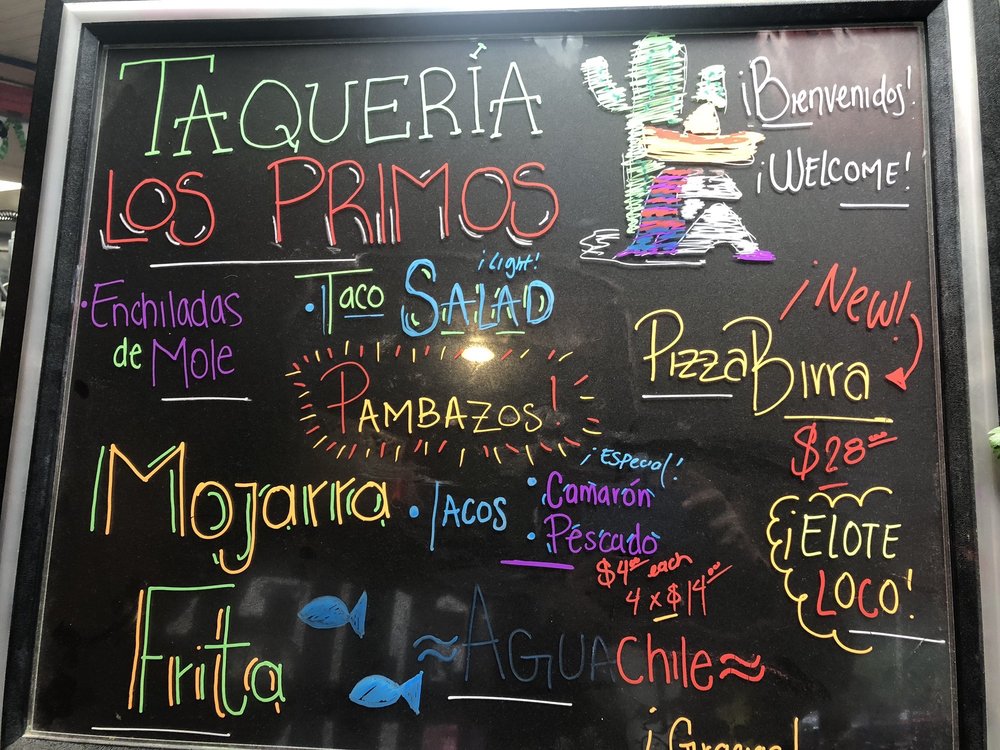 TAQUERÍA
LOS PRIMOS
¡Bienvenidos!
¡WELCOME!
• Enchiladas
de Mole
• Taco SALAD
¡Light!
PAMBAZOS!
¡New!
PizzaBirra
$28.00
Mojarra
Frita
• TACOS
¡ESPECIAL!
• Camarón
• Pescado
$4.00 each
4 x $14.00
¡ELOTE
LOCO!
≈AGUAChile≈